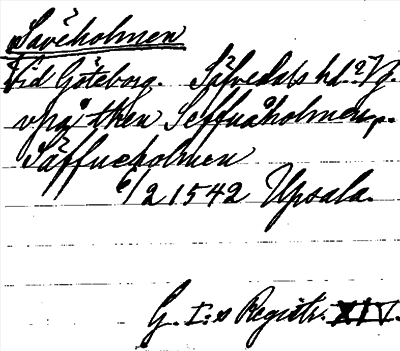 Säveholmen
Vid Göteborg. Säfvedals hd ? Vg.
vpå then Seffuåholmen.
Säffueholmen
6/2 1542 Upsala.
G. I:s Registr. XIV.